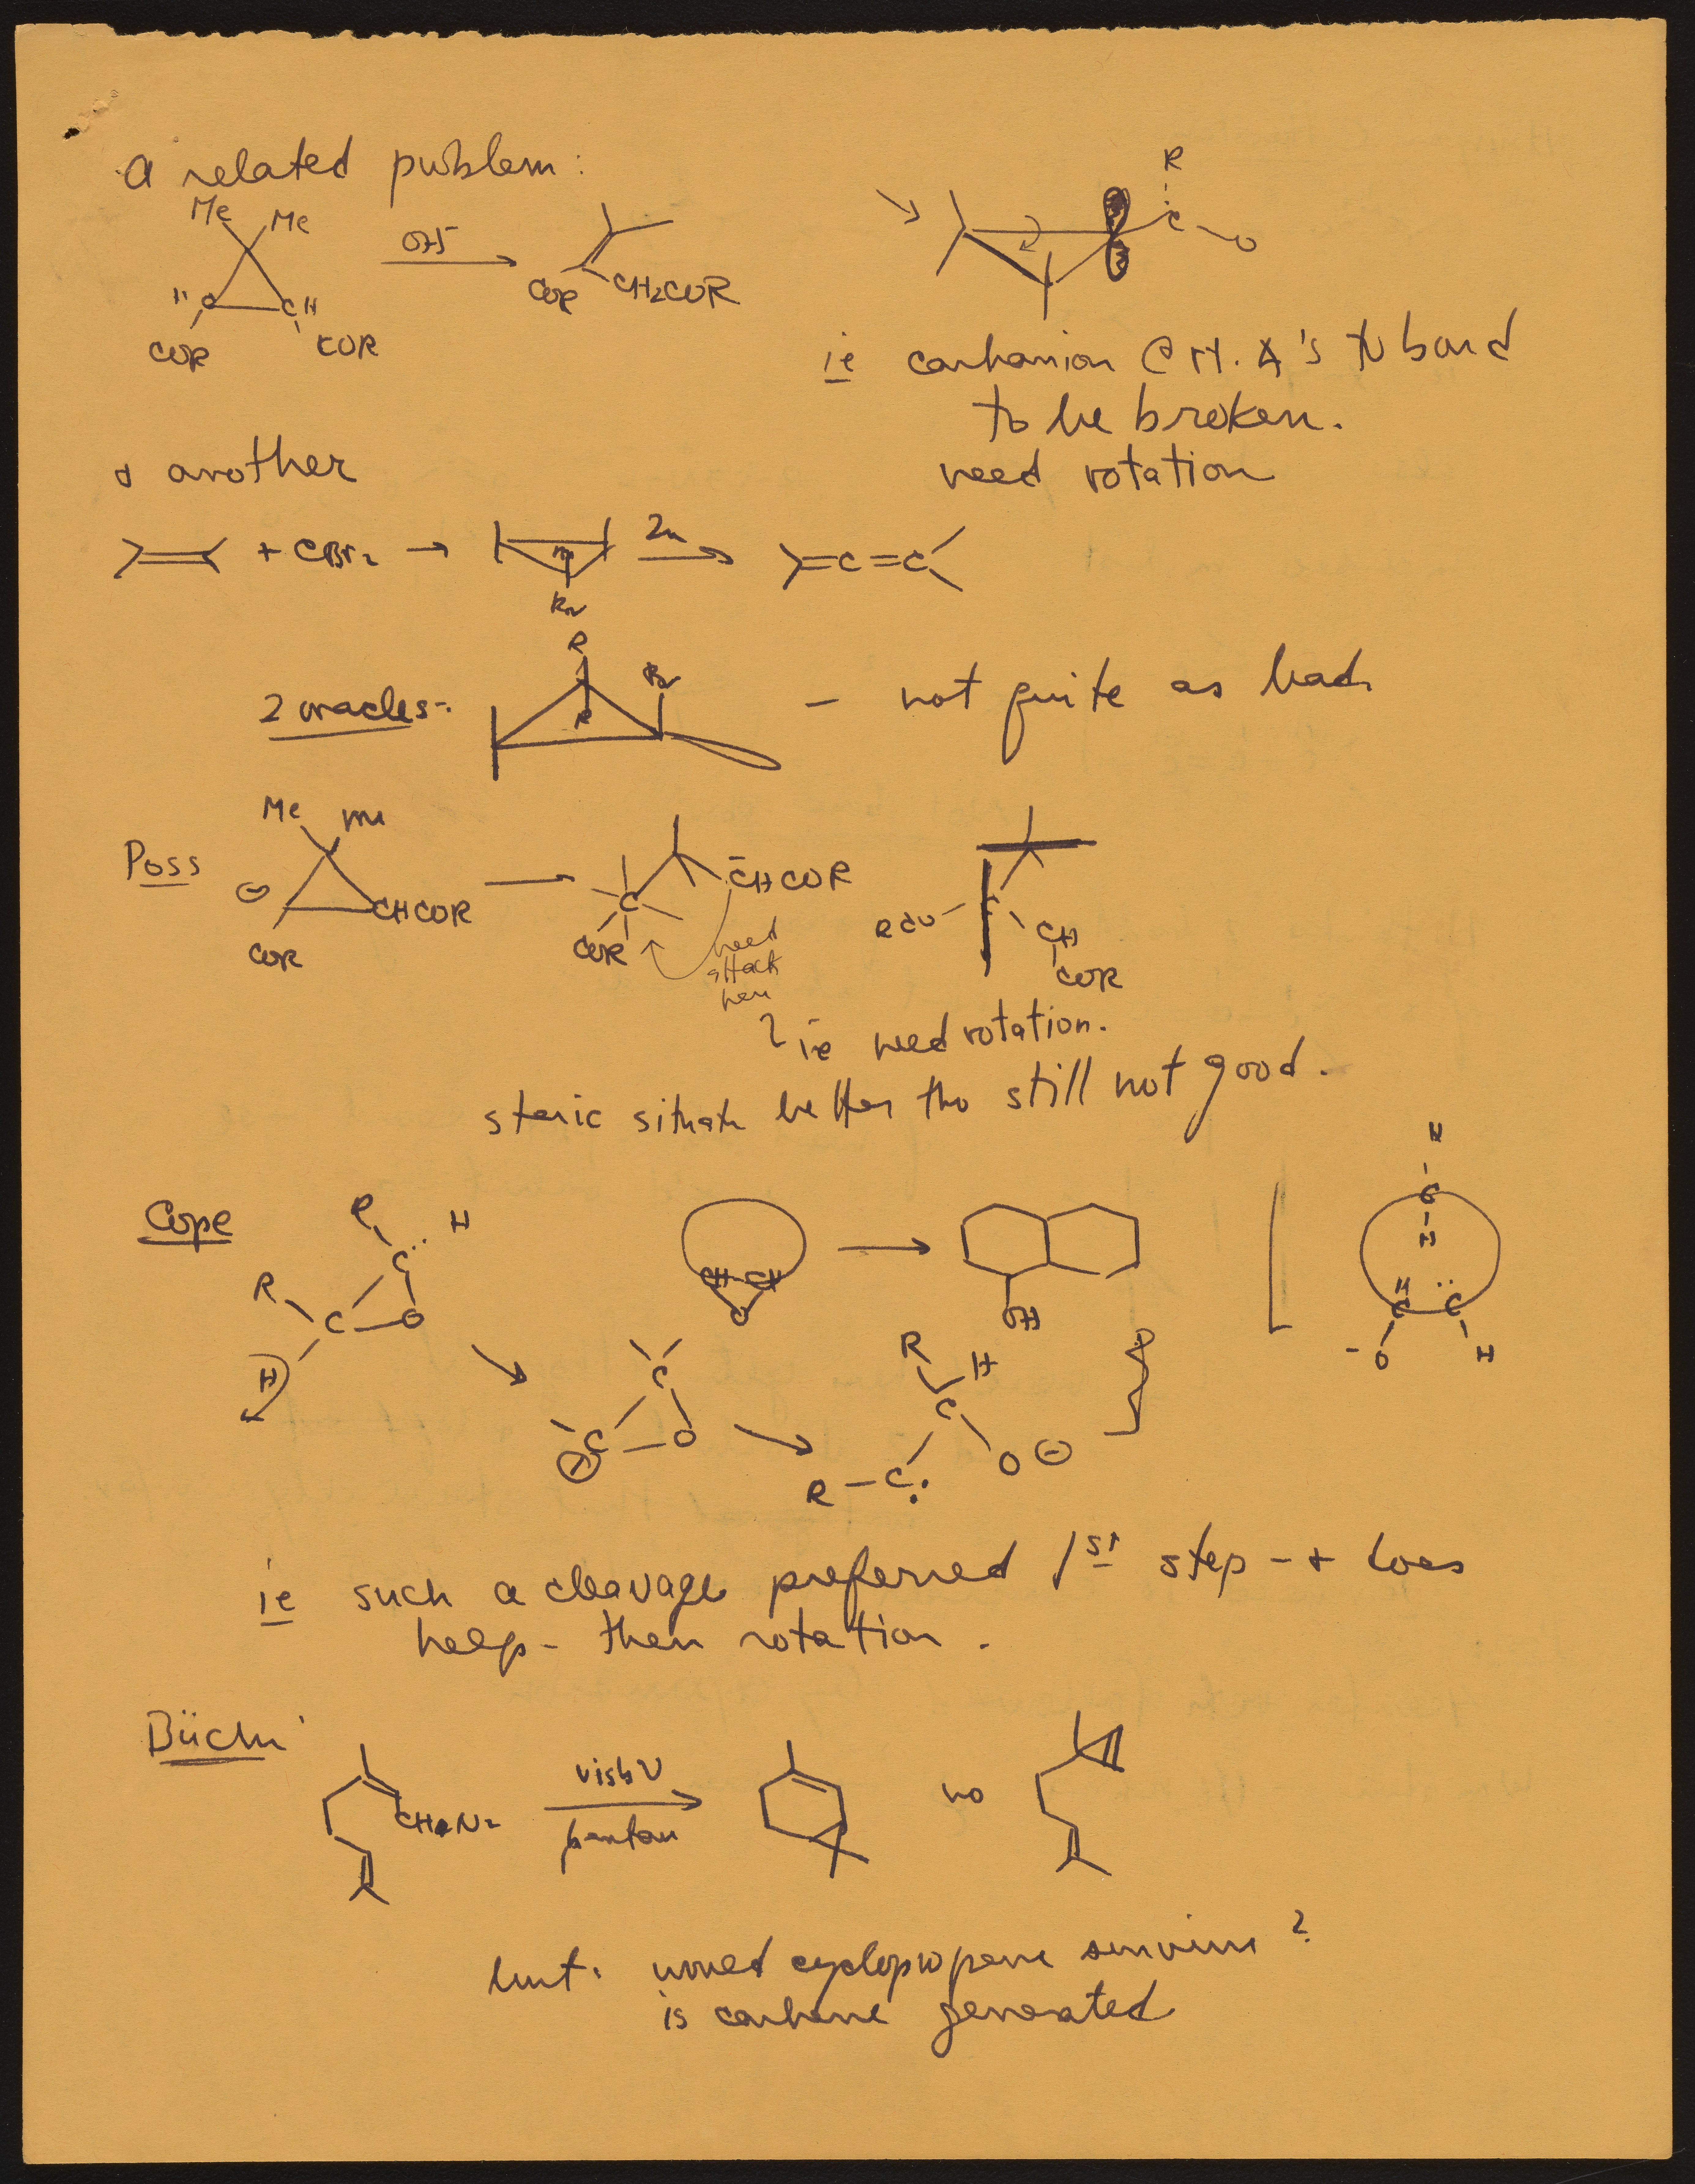 a related problem:
Me Me
OH⁻
H C CH
COR COR
COR CH2COR
R
C O
ie carbanion @ rt. ∡'s to bond
to be broken.
need rotation
+ another
+ CBr2 → Zn =C=C
Br
2 oracles:
R
R
Br
– not quite as bad
Poss
Me Me
⊖ CHCOR
COR
C C̄HCOR
COR
need
attack
here
RCO C CH
COR
? ie need rotation.
steric situatn better tho still not good.
Cope
R H
C:
R C O
H
CH CH
O
OH
H
C
H
H
C C
-O H
C
⊖ C O
R H
C
R–C: O⊖
ie such a cleavage preferred 1st step – + does
help – then rotation.
Büchi
CH N2
vis hν
pentan
no
but: would cyclopropene survive?
is carbene generated